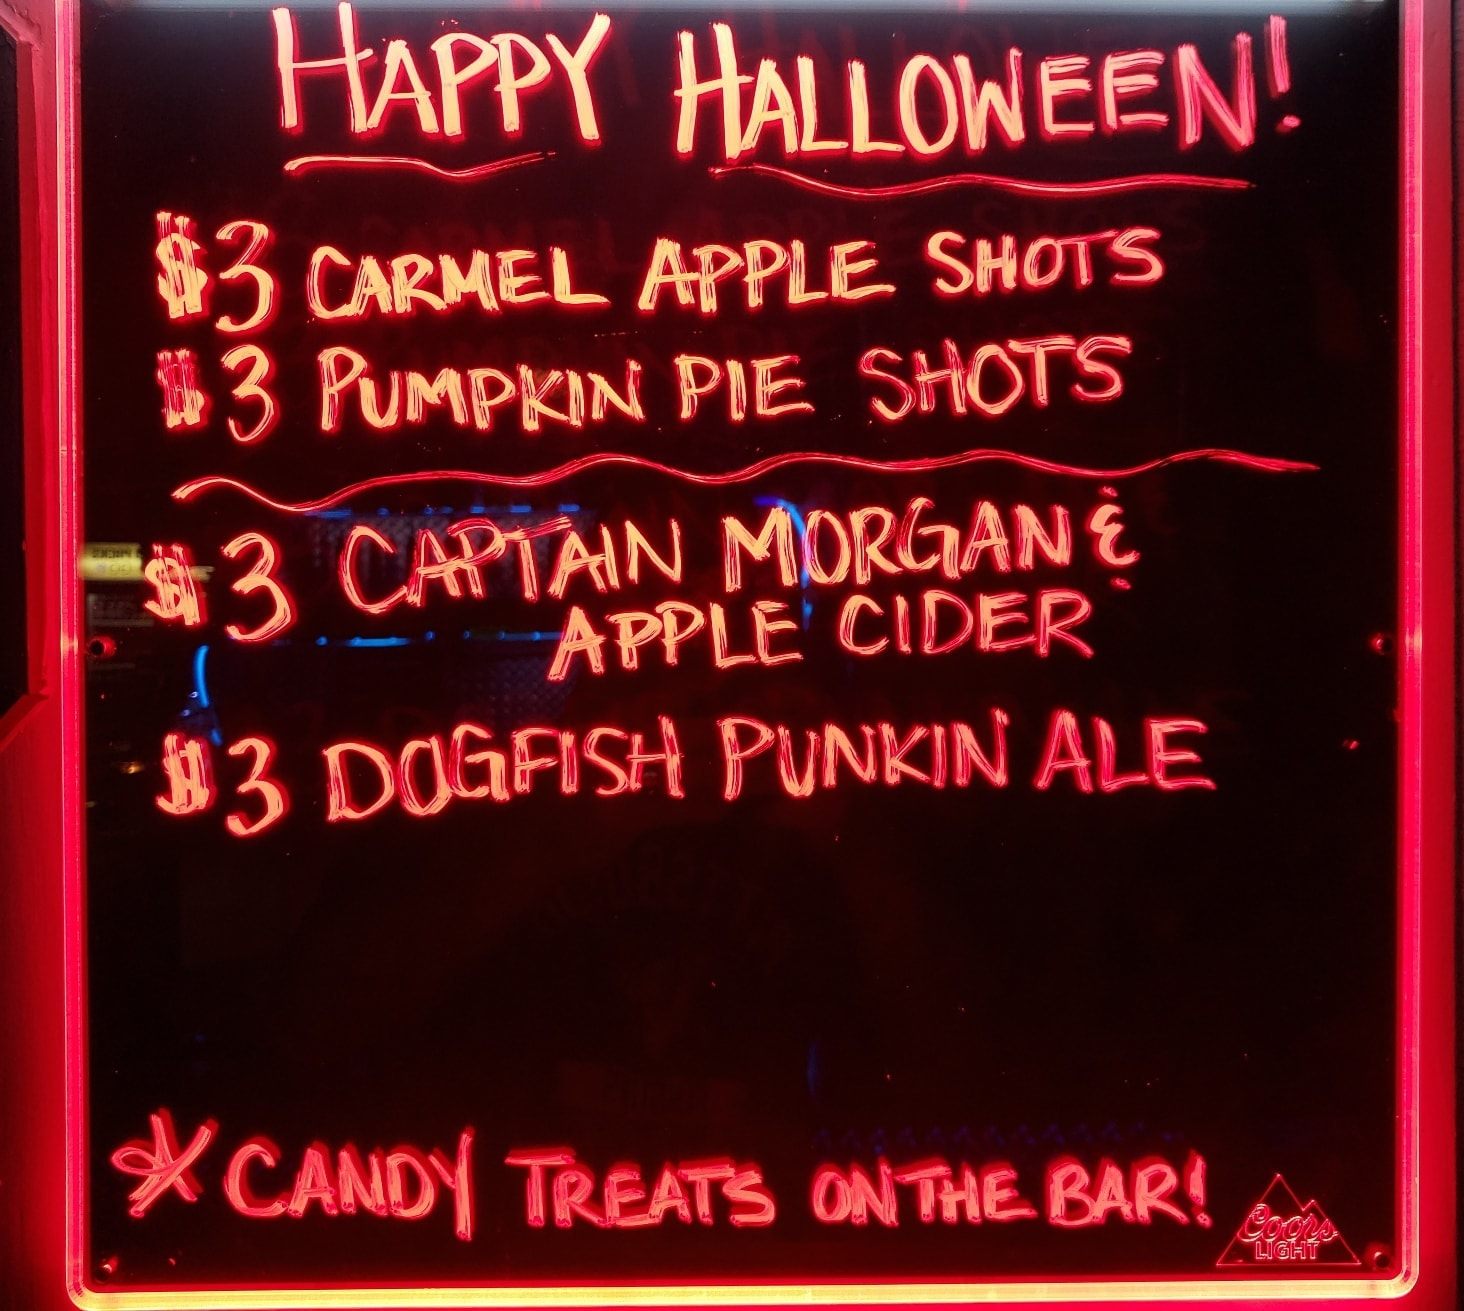 HAPPY HALLOWEEN!
$3 CARMEL APPLE SHOTS
$3 PUMPKIN PIE SHOTS
$3 CAPTAIN MORGAN &
APPLE CIDER
$3 DOGFISH PUNKIN ALE
* CANDY TREATS ON THE BAR!
Coors
LIGHT